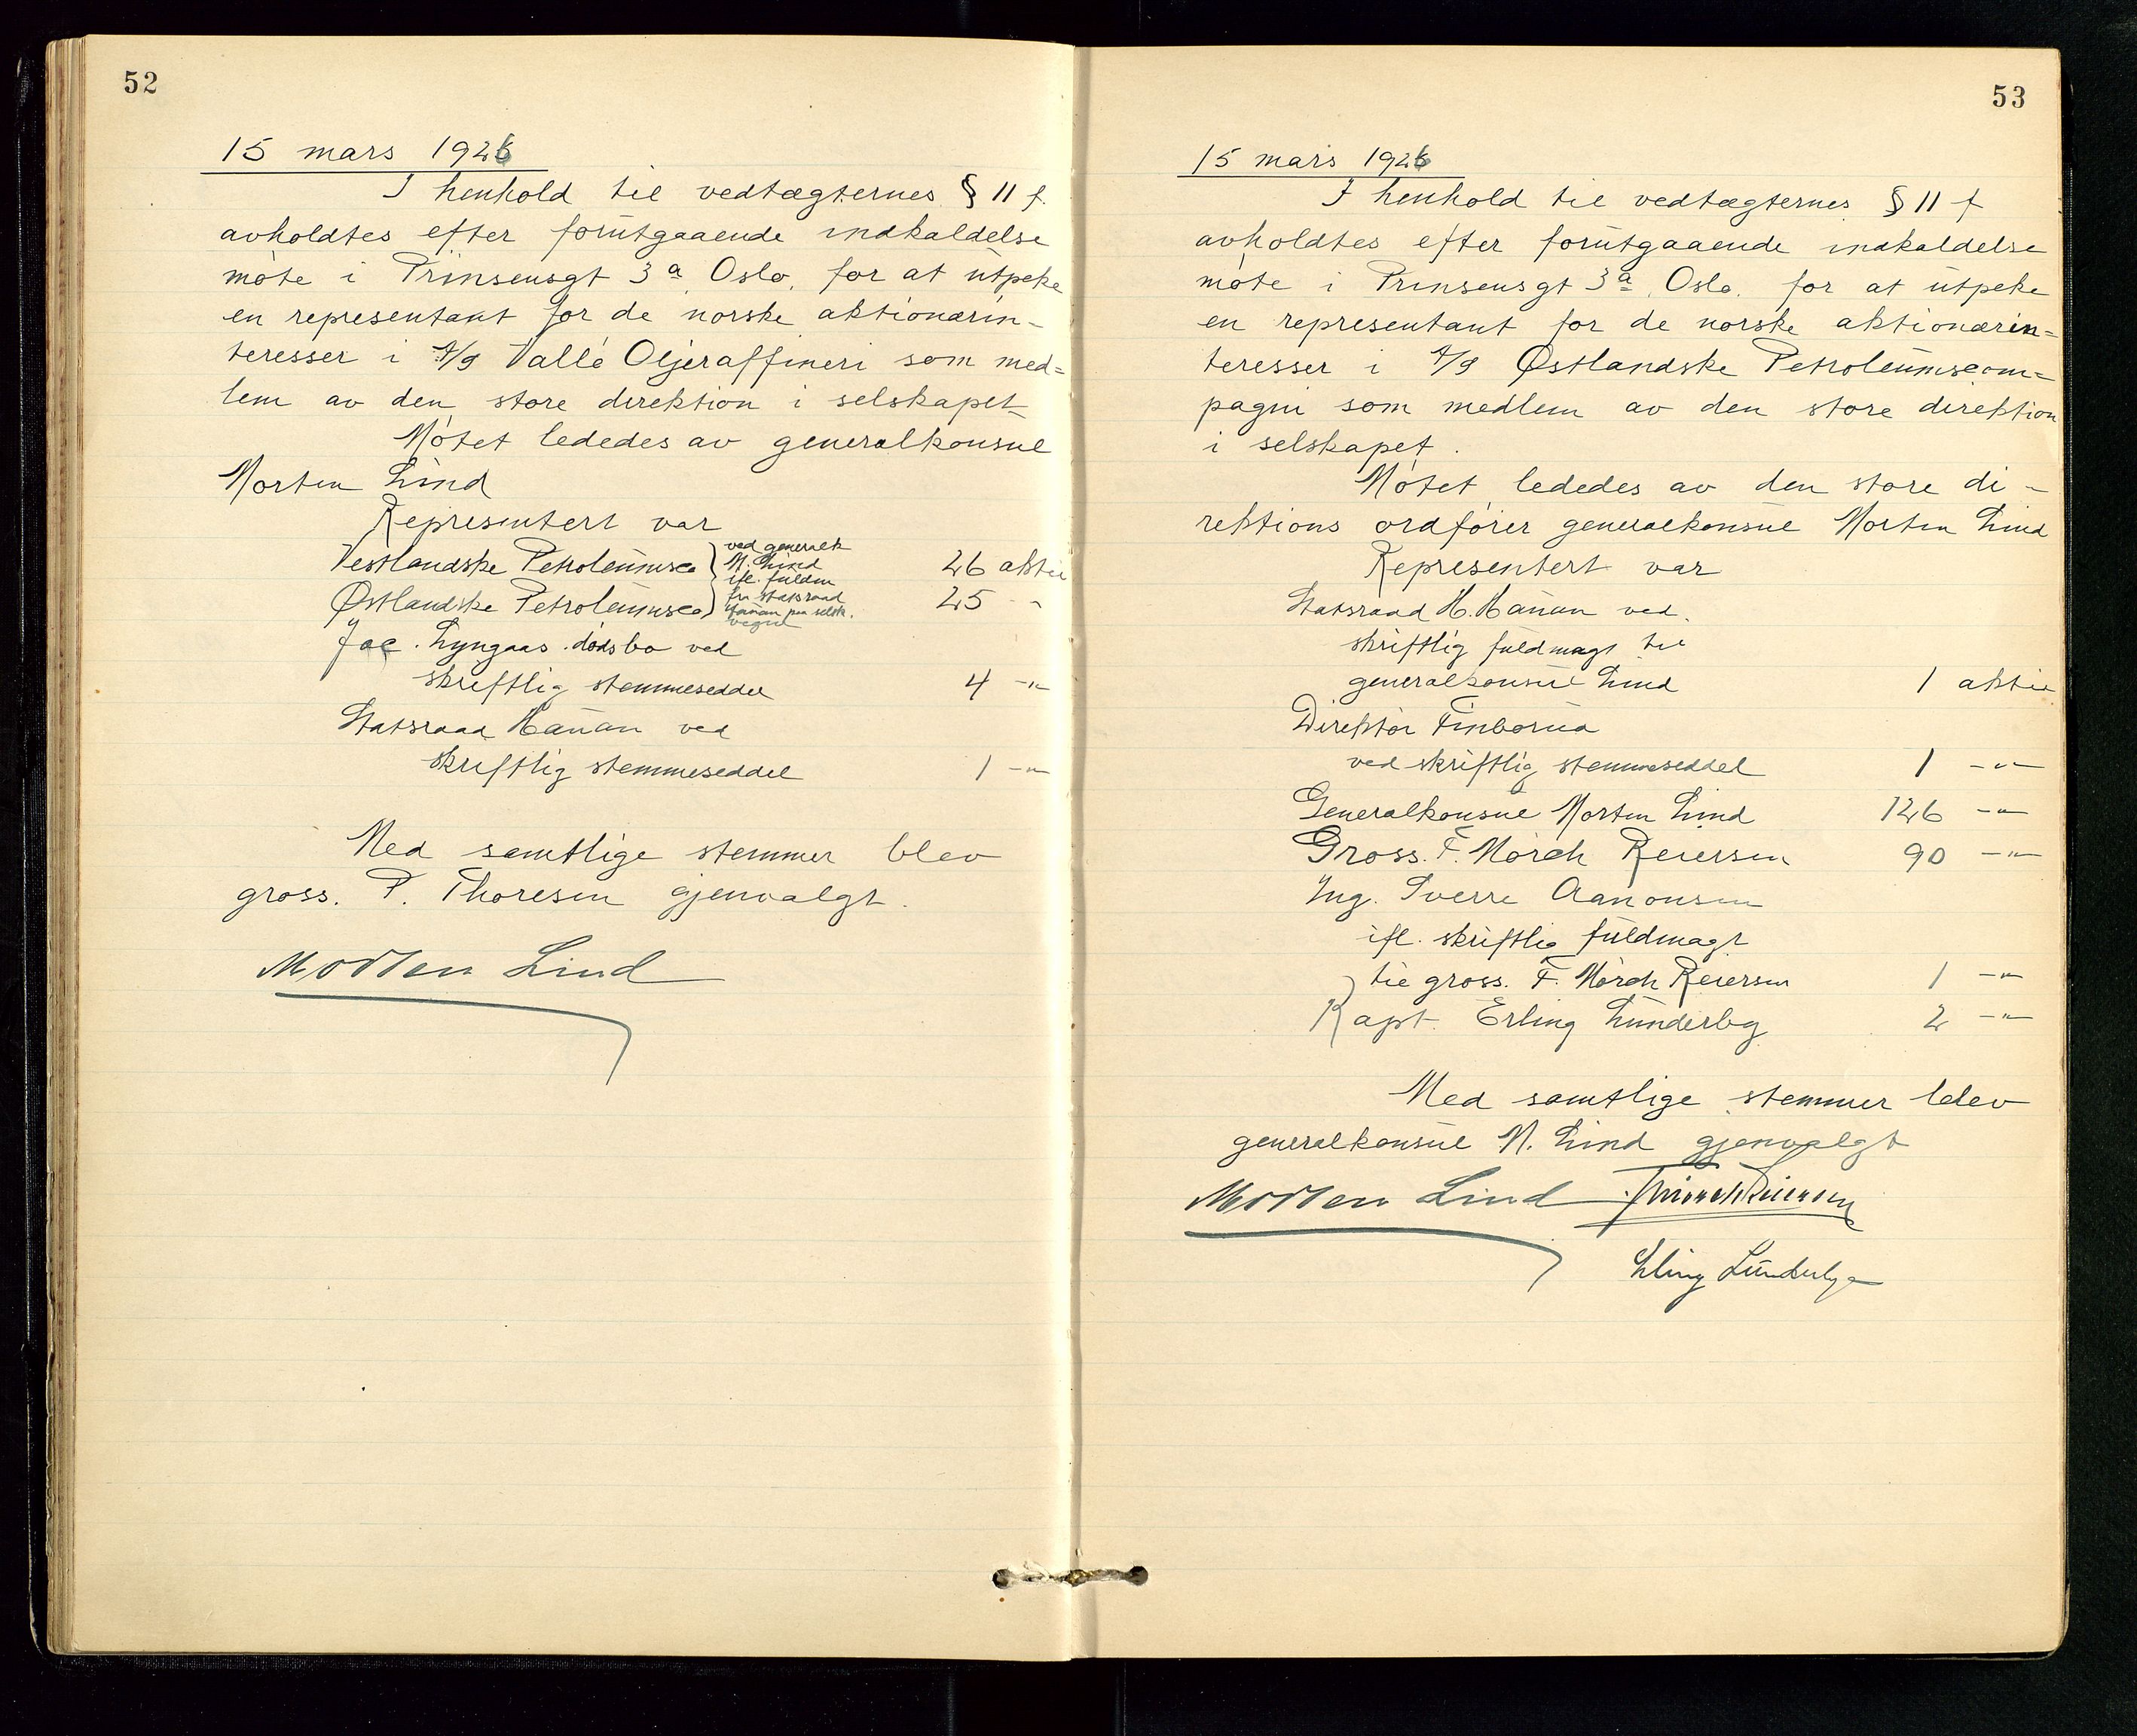 52
15 mars 1926
I henhold til vedtægternes § 11 f.
avholdtes efter forutgaaende indkaldelse
møte i Prinsensgt 3a, Oslo, for at utpeke
en representant for de norske aktionærin-
teresser i A/S Vallø Oljeraffineri som med=
lem av den store direktion i selskapet
Møtet lededes av generalkonsul
Morten Lind
Representert var
Vestlandske Petroleumsco } ved generalk M. Lind 26 aktie
ifl. fuldm
Østlandske Petroleumsco } fra statsraad Hauan paa selsk. vegne 25 - "
Jac. Lyngaas dødsbo ved
skriftlig stemmeseddel 4 -"-
Statsraad Hauan ved
skriftlig stemmeseddel 1 -"-
Med samtlige stemmer blev
gross. P. Thoresen gjenvalgt.
Morten Lind
53
15 mars 1926
I henhold til vedtægternes § 11 f
avholdtes efter forutgaaende indkaldelse
møte i Prinsensgt 3a, Oslo, for at utpeke
en representant for de norske aktionærin=
teresser i A/S Østlandske Petroleumscom=
pagni som medlem av den store direktion
i selskapet.
Møtet lededes av den store di-
rektions ordfører generalkonsul Morten Lind
Representert var
Statsraad H. Hauan ved
skriftlig fuldmagt til
generalkonsul Lind 1 aktie
Direktør Finborud
ved skriftlig stemmeseddel 1 -"-
Generalkonsul Morten Lind 126 -"-
Gross. F. Mørch Reiersen 90 -"-
Ing. Sverre Aanonsen
ifl. skriftlig fuldmagt
til gross. F. Mørch Reiersen 1 -"-
Kapt. Erling Lunderbg 2 -"-
Med samtlige stemmer blev
generalkonsul M. Lind gjenvalgt
Morten Lind FMørchReiersen
Erling Lunderbye